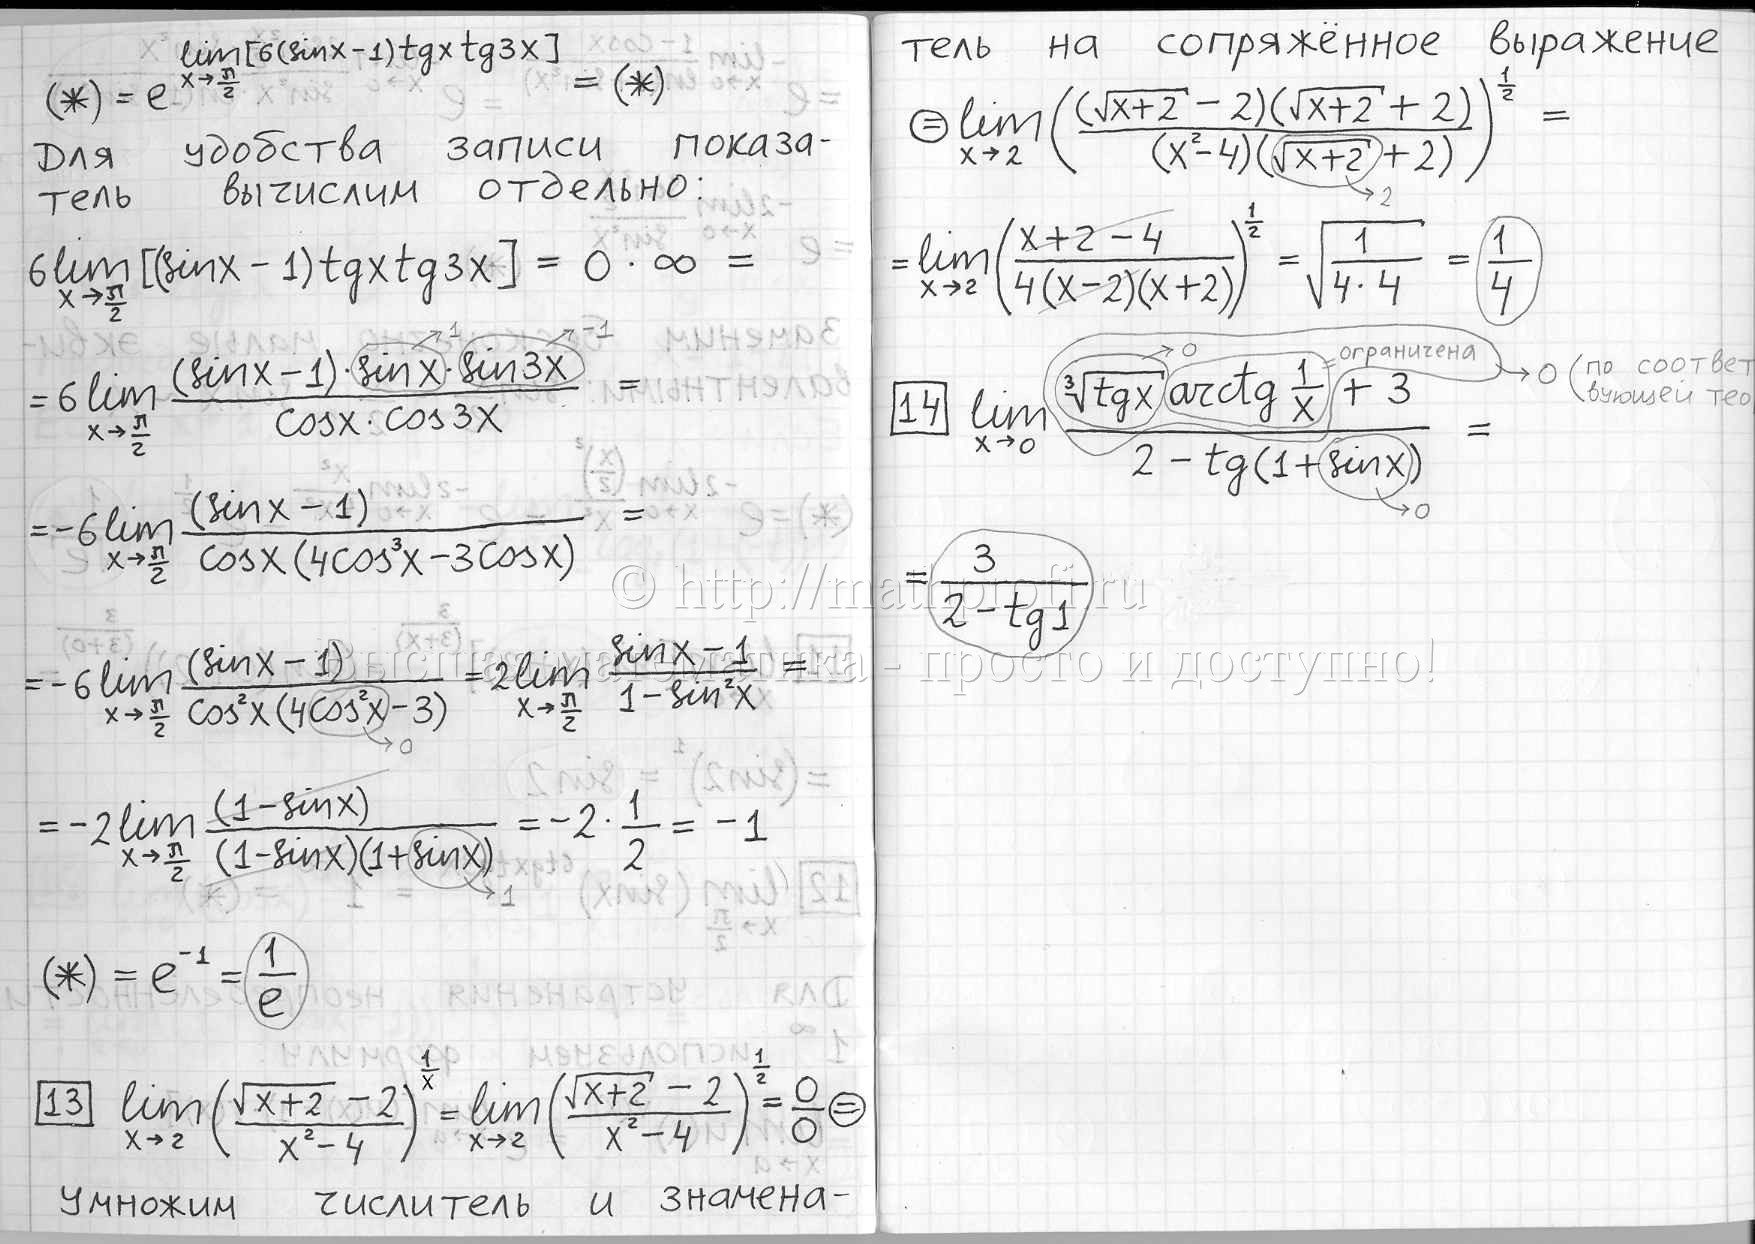 (*) = e^{lim_{x→π/2} [6(sinx-1)tgx tg3x]} = (*)
Для удобства записи показа-
тель вычислим отдельно:
6 lim_{x→π/2} [(sinx - 1)tgx tg3x] = 0 · ∞ =
= 6 lim_{x→π/2} \frac{(sinx - 1)·sinx·sin3x}{cosx·cos3x} =
→1 →-1
= -6 lim_{x→π/2} \frac{(sinx - 1)}{cosx(4cos³x - 3cosx)} =
= -6 lim_{x→π/2} \frac{(sinx - 1)}{cos²x(4cos²x - 3)} = 2 lim_{x→π/2} \frac{sinx - 1}{1 - sin²x} =
→0
= -2 lim_{x→π/2} \frac{(1 - sinx)}{(1 - sinx)(1 + sinx)} = -2 · \frac{1}{2} = -1
→1
(*) = e^{-1} = \frac{1}{e}
13 lim_{x→2} (\frac{\sqrt{x+2} - 2}{x² - 4})^{\frac{1}{x}} = lim_{x→2} (\frac{\sqrt{x+2} - 2}{x² - 4})^{\frac{1}{2}} = \frac{0}{0} ⊜
Умножим числитель и знамена-
тель на сопряжённое выражение
⊜ lim_{x→2} (\frac{(\sqrt{x+2} - 2)(\sqrt{x+2} + 2)}{(x² - 4)(\sqrt{x+2} + 2)})^{\frac{1}{2}} =
→2
= lim_{x→2} (\frac{x + 2 - 4}{4(x - 2)(x + 2)})^{\frac{1}{2}} = \sqrt{\frac{1}{4·4}} = \frac{1}{4}
14 lim_{x→0} \frac{\sqrt[3]{tgx} arctg\frac{1}{x} + 3}{2 - tg(1 + sinx)} =
→0 = ограничена →0 (по соответ
вующей тео
→0
= \frac{3}{2 - tg1}
© http://mathprofi.ru
Высшая математика - просто и доступно!